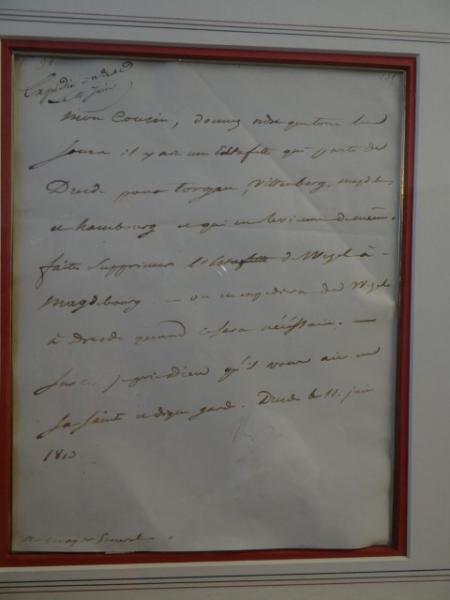 Expédié
11 Juin
Mon Cousin, donnez ordre que tous les
jours il y ait une estafette qui parte de
Dresde pour torgau, Vittemberg, magdb.
et hambourg et qui en revienne de même.
faites supprimer l'estafette de Wezel à
Magdebourg — on en expédiera de Wezel
à dresde quand il sera nécessaire. —
Sur ce, je prie dieu qu'il vous ait en
sa sainte et digne garde. Dresde le 11. juin
1813
au major General.